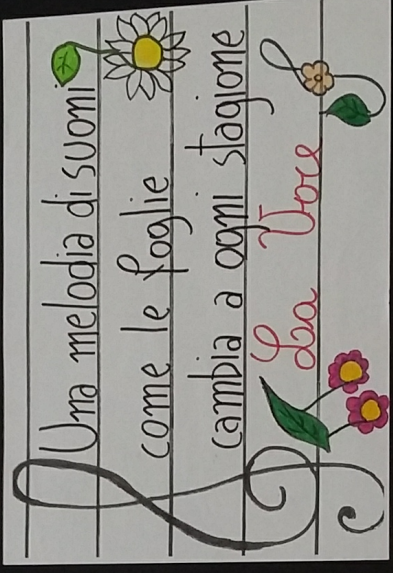 Una melodia di suoni
come le foglie
cambia a ogni stagione
La Voce